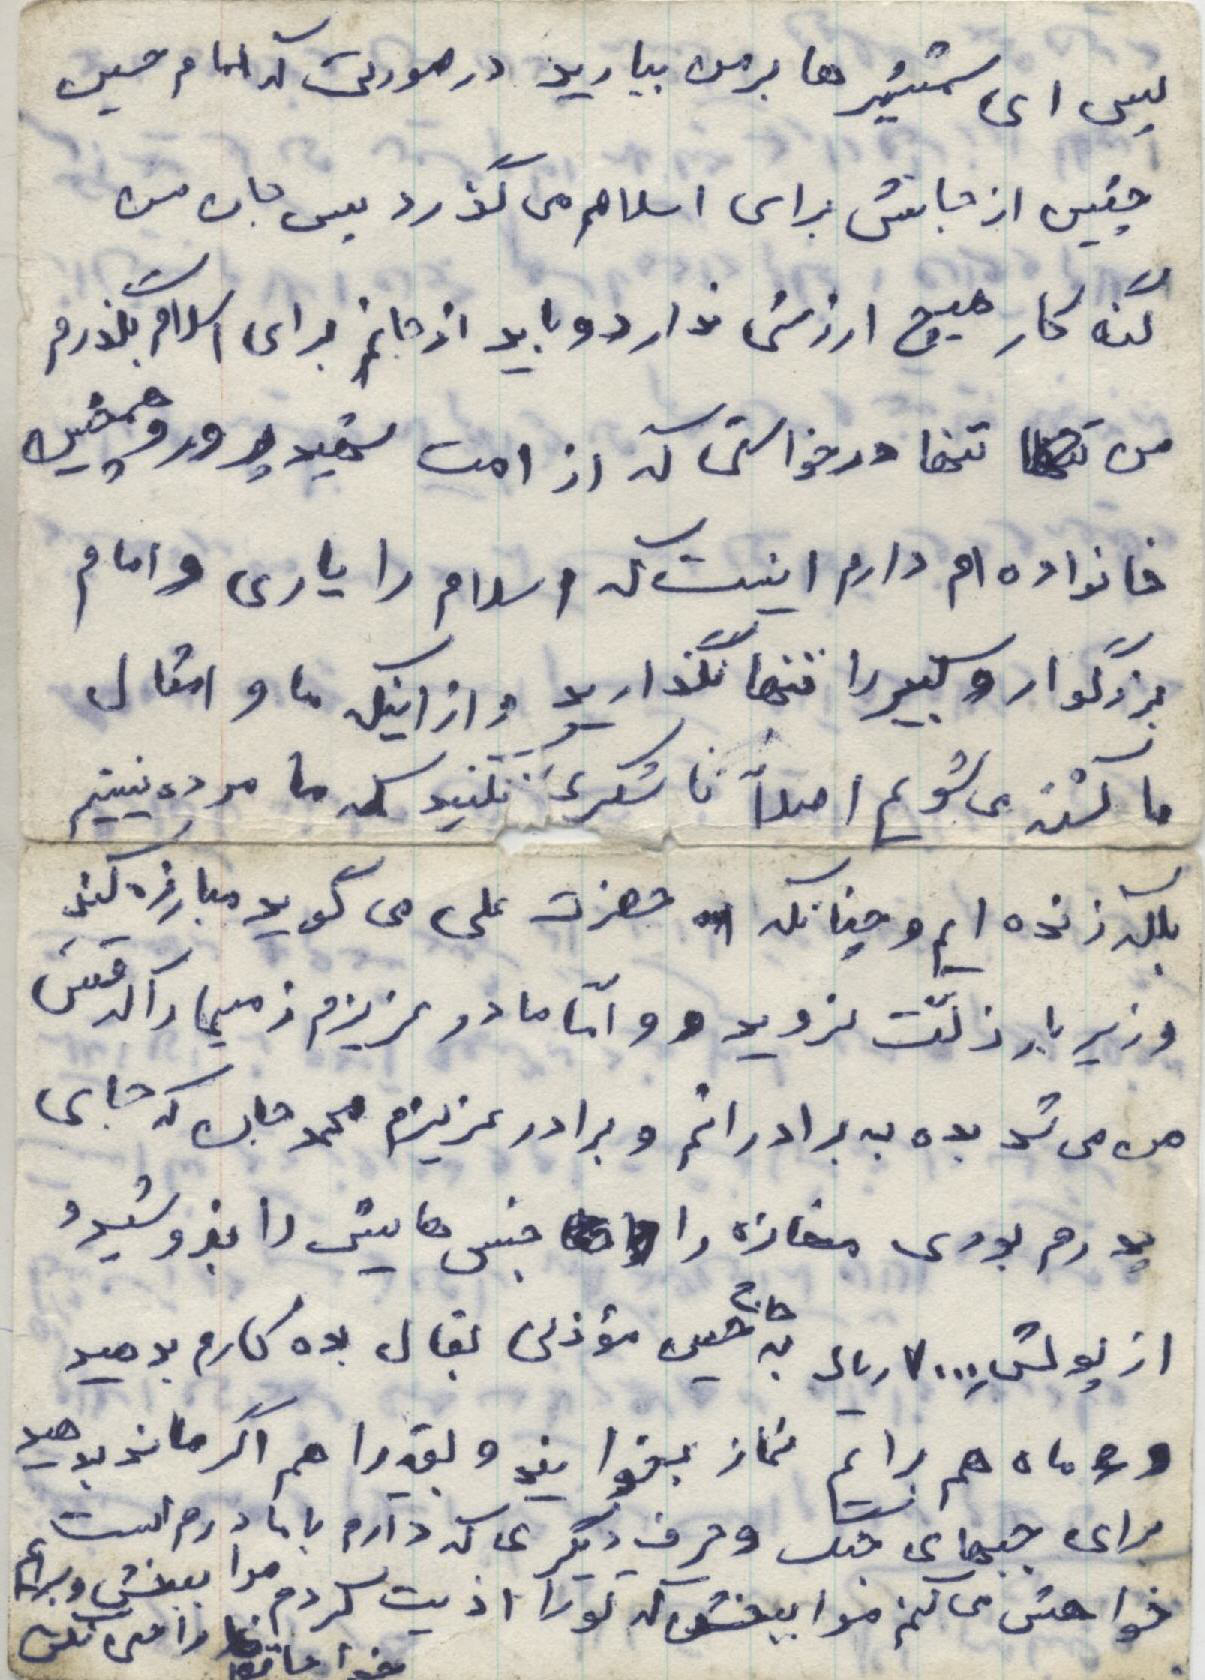 پس ای شمشیر ها بر من ببارید در صورتی که امام حسین
چنین از جانش برای اسلام می گذرد پس جان من
گنه کار هیچ ارزشی ندارد و باید از جانم برای اسلام بگذرم
من تنها درخواستی که از امت شهید پرور و همچنین
خانواده ام دارم اینست که اسلام را یاری و امام
بزرگوار و کبیر را تنها نگذارید و از اینکه ما و امثال
ما کشته می شویم اصلاً ناشکری نکنید که ما مرده نیستیم
بلکه زنده ایم و چنانکه حضرت علی می گوید مبارزه کنید
و زیر بار ذلّت نروید و و امّا مادر عزیزم زمینها را که قسمت
من می شد بده به برادرانم و برادر عزیزم محمد جان که جای
پدرم بودی مغازه را جنس هایش را بفروشید و
از پولش ۷۰۰۰ ریال به حاج حسین مؤذنی بقال بده کارم بدهید
و ۶ ماه هم برایم نماز بخوانید و بقیه را هم اگر ماند بدهید
برای جبهای جنگ و حرف دیگری که دارم با مادرم است
خواهش می کنم مرا ببخش که تو را اذیت کردم مرا ببخش و برایم
خدا حافظ ناراحتی نکن